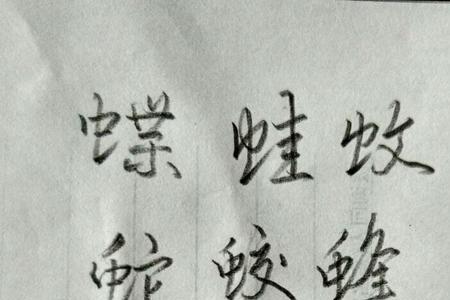 蝶 蛙 蚊
蛇 蛟 蜂